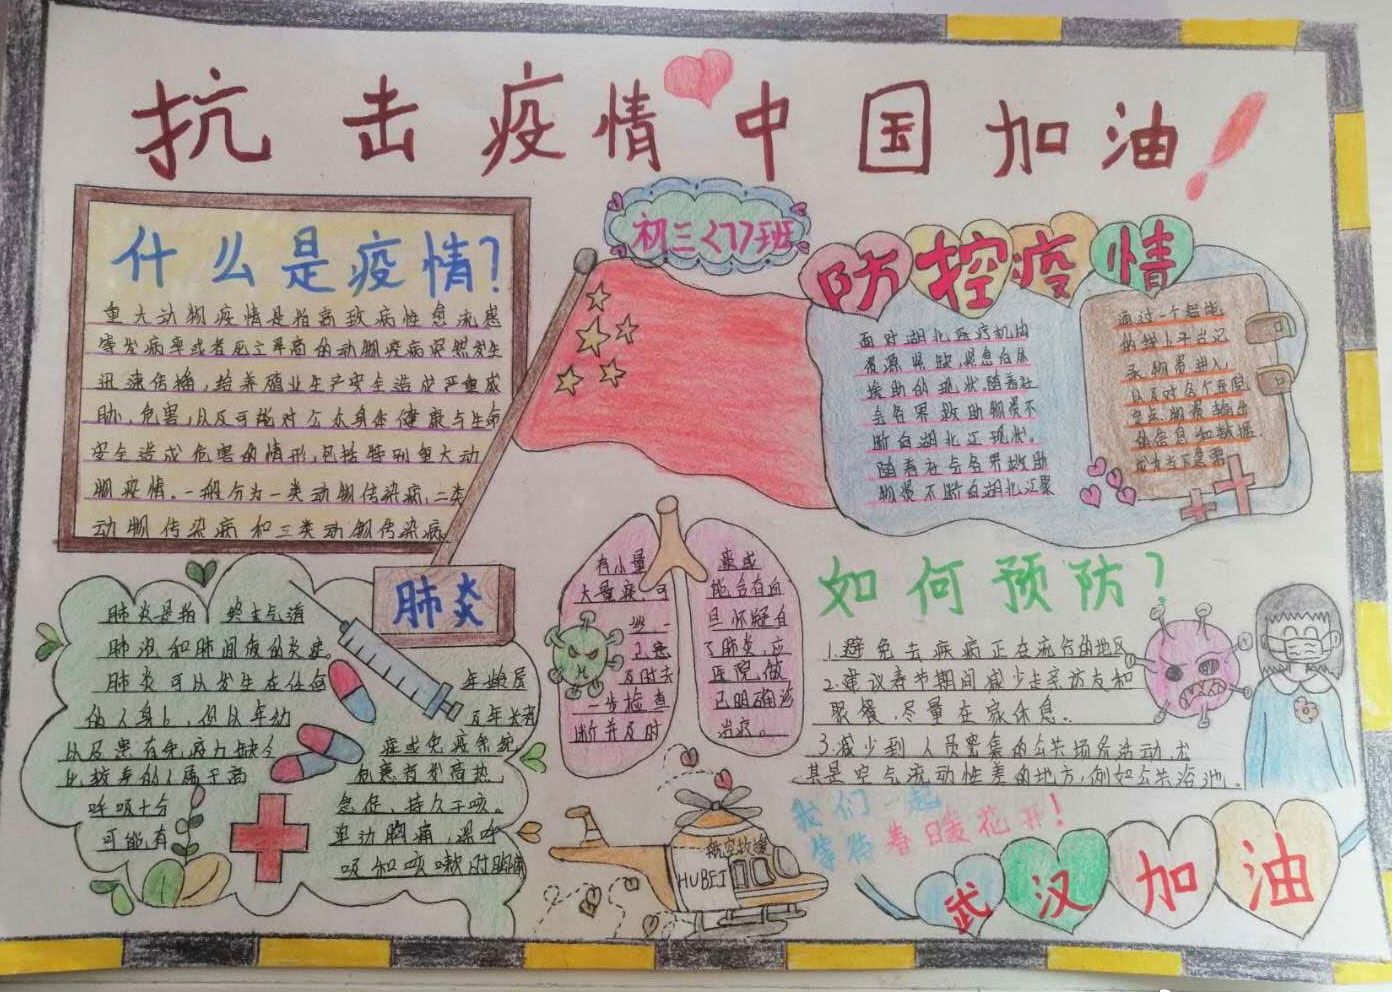 抗击疫情中国加油！
初三<7>班
什么是疫情？
重大动物疫情是指高致病性禽流感
等发病率或者死亡率高的动物疫病突然发生
迅速传播，给养殖业生产安全造成严重威
胁、危害，以及可能对公众身体健康与生命
安全造成危害的情形，包括特别重大动
物疫情。一般分为一类动物传染病，二类
动物传染病和三类动物传染病。
防控疫情
面对湖北医疗机构
资源紧缺，紧急
援助的现状，随着社
会各界救助物资不
断向湖北
随着社会各界救助
物资不断向湖北汇聚
通过一个智能
的线上平台记
录物资进入
以及对各个医院
定点物资输出
的信息和数据
成为当下急需
肺炎
肺炎是指 终末气道
肺泡和肺间质的炎症。
肺炎可以发生在任何
的人身上，但以年幼
年龄
以及患有免疫力缺
症或免疫系统
比较差的人属于高
有患有发高热，
呼吸十分
急促、持久干咳。
可能有
单边胸痛，深呼
吸和咳嗽时胸痛
有小量
大量痰，可
一步检查
断并及时
痰或
能含有血
旦怀疑自
了肺炎，应
医院做
已明确诊
治疗。
如何预防？
1.避免去疾病正在流行的地区
2.建议春节期间减少走亲访友和
聚餐，尽量在家休息。
3.减少到人员密集的公共场所活动，尤
其是空气流动性差的地方，例如公共浴池。
我们一起
等待春日暖花开！
航空救援
HUBEI
武汉加油